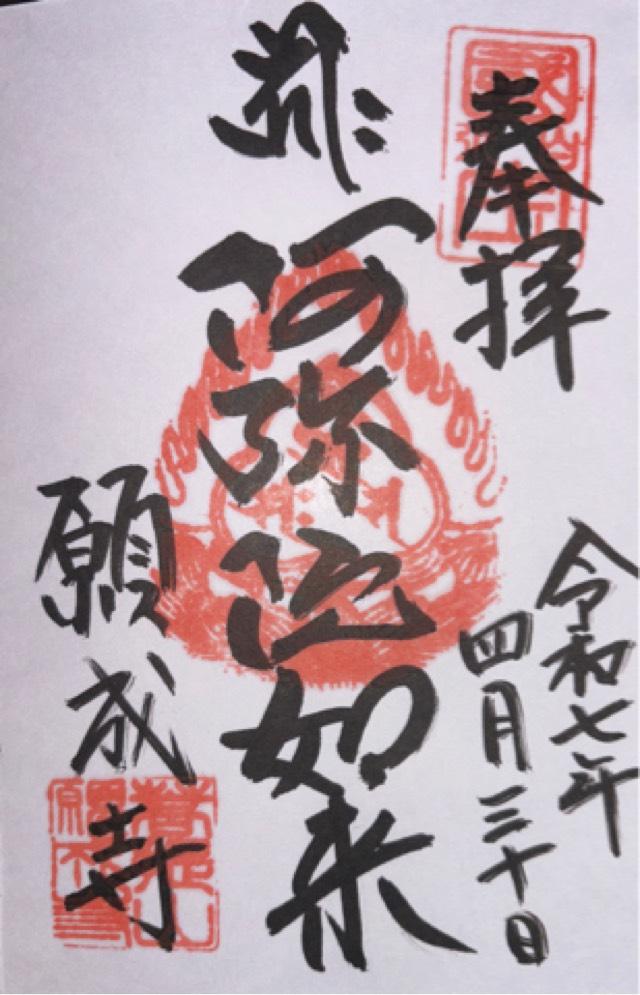 奉拝
令和七年
四月三十日
阿弥陀如来
願成寺